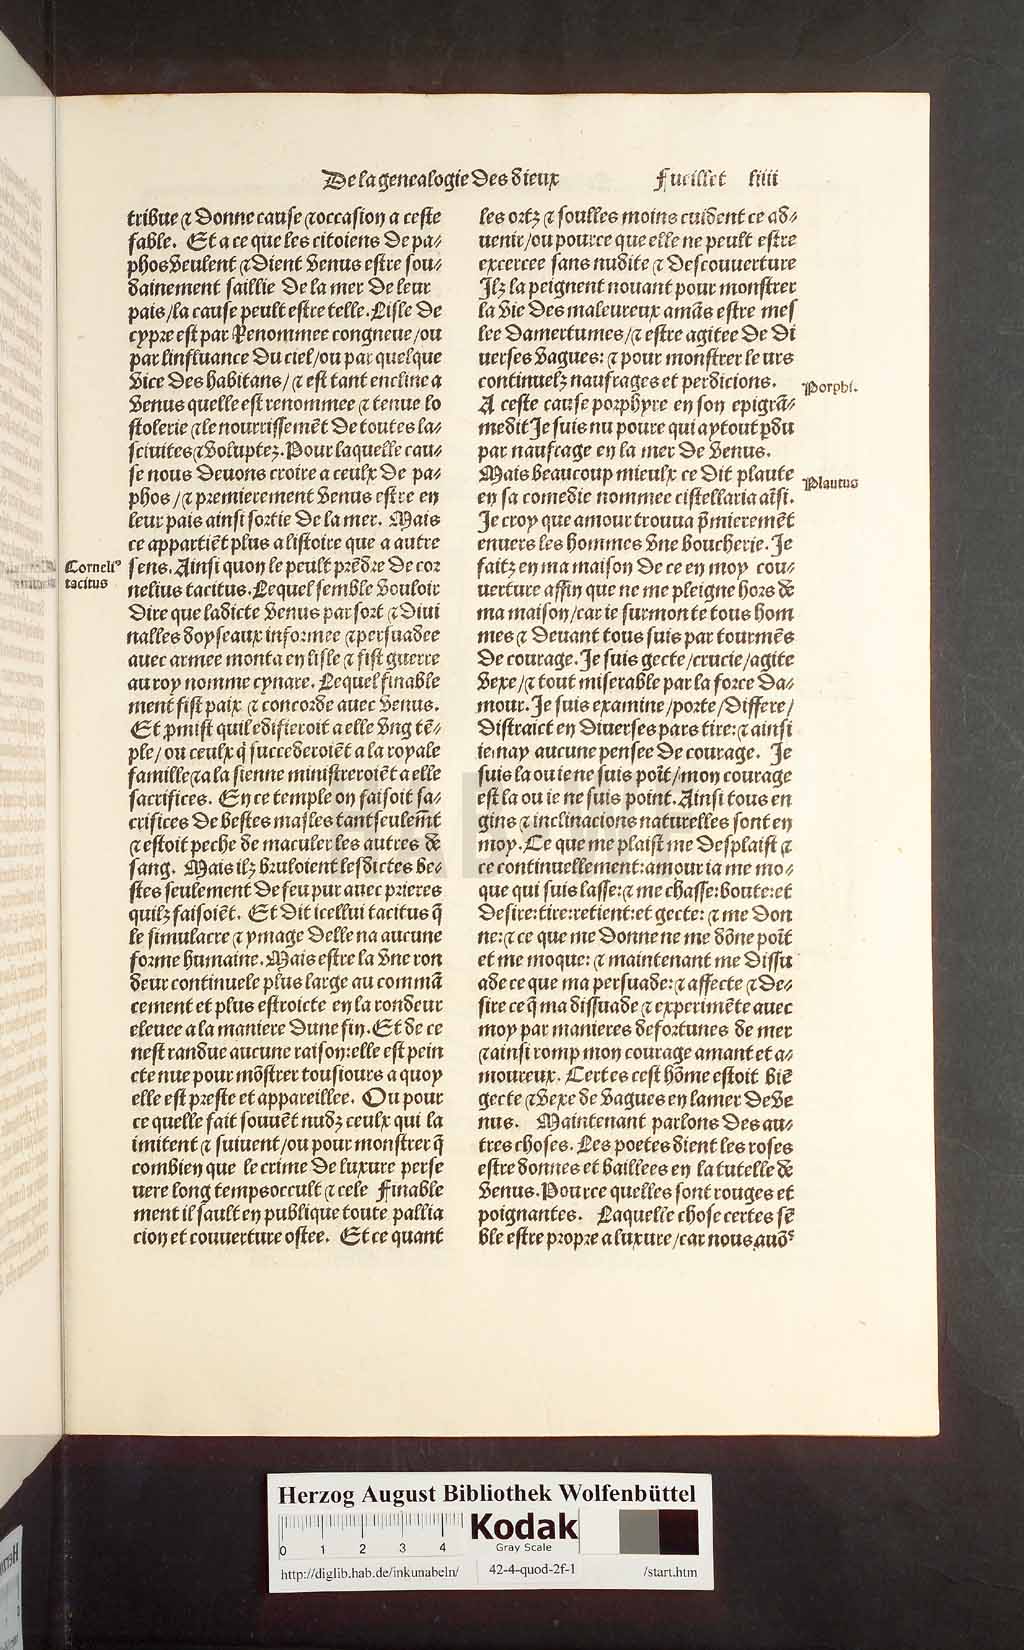 De la genealogie Des dieux
Fueillet liiii
tribue ⁊ Donne cause ⁊ occasion a ceste
fable. Et a ce que les citoiens De pa⸗
phos veulent ⁊ Dient venus estre sou⸗
dainement saillie De la mer De leur
pais/la cause peult estre telle. Lisle De
cypre est par Renommee congneue/ou
par linfluance Du ciel/ou par quelque
vice Des habitans/⁊ est tant encline a
venus quelle est renommee ⁊ tenue lo
stolerie ⁊ le nourrissemēt De toutes la⸗
sciuites ⁊ voluptez. Pour laquelle cau⸗
se nous Deuons croire a ceulx De pa⸗
phos/⁊ premierement venus estre en
leur pais ainsi sortie De la mer. Mais
ce appartiēt plus a listoire que a autre
sens. Ainsi quon le peult prēdre De cor
nelius tacitus. Lequel semble vouloir
Dire que ladicte venus par sort ⁊ Diui
nalles doyseaux informee ⁊ persuadee
auec armee monta en lisle ⁊ fist guerre
au roy nomme cynare. Lequel finable
ment fist paix ⁊ concorde auec venus.
Et ꝓmist quil edifieroit a elle vng tē⸗
ple/ou ceulx q̄ succederoiēt a la royale
famille ⁊ a la sienne ministreroiēt a elle
sacrifices. En ce temple on faisoit sa⸗
crifices De bestes masles tant seulem̄t
⁊ estoit peche de maculer les autres de
sang. Mais ilz bruloient lesdictes be⸗
stes seulement De feu pur auec prieres
quilz faisoiēt. Et Dit icellui tacitus q̄
le simulacre ⁊ ymage Delle na aucune
forme humaine. Mais estre la vne ron
deur continuele plus large au commā
cement et plus estroicte en la rondeur
eleuee a la maniere Dune fin. Et de ce
nest randue aucune raison:elle est pein
cte nue pour mōstrer tousiours a quoy
elle est preste et appareillee. Ou pour
ce quelle fait souuēt nudz ceulx qui la
imitent ⁊ suiuent/ou pour monstrer q̄
combien que le crime De luxure perse
uere long temps occult ⁊ cele Finable
ment il sault en publique toute pallia
cion et couuerture ostee. Et ce quant
Corneliꝰ
tacitus
les ortz ⁊ soulles moins cuident ce ad⸗
uenir/ou pource que elle ne peult estre
excercee sans nudite ⁊ Descouuerture
Ilz la peignent nouant pour monstrer
la vie Des maleureux amās estre mes
lee Damertumes/⁊ estre agitee De Di
uerses vagues: ⁊ pour monstrer leurs
continuelz naufrages et perdicions.
A ceste cause porphyre en son epigrā⸗
me dit Je suis nu poure qui ay tout ꝑdu
par naufrage en la mer de venus.
Mais beaucoup mieulx ce Dit plaute
en sa comedie nommee cistellaria aīsi.
Je croy que amour trouua p̄mieremēt
enuers les hommes vne boucherie. Je
faitz en ma maison De ce en moy cou⸗
uerture affin que ne me pleigne hors de
ma maison/car ie surmonte tous hom
mes ⁊ Deuant tous suis par tourmēs
De courage. Je suis gecte/crucie/agite
vexe/⁊ tout miserable par la force Da⸗
mour. Je suis examine/porte/Differe/
Distraict en Diuerses pars tire:⁊ ainsi
ie nay aucune pensee De courage. Je
suis la ou ie ne suis poīt/mon courage
est la ou ie ne suis point. Ainsi tous en
gins ⁊ inclinacions naturelles sont en
moy. Ce que me plaist me Desplaist ⁊
ce continuellement:amour ia me mo⸗
que qui suis lasse:⁊ me chasse:boute:et
Desire:tire:retient:et gecte: ⁊ me Don
ne:⁊ ce que me Donne ne me dōne poīt
et me moque: ⁊ maintenant me Dissu
ade ce que ma persuade:⁊ affecte ⁊ De⸗
sire ce q̄ ma dissuade ⁊ experimēte auec
moy par manieres de fortunes de mer
⁊ ainsi romp mon courage amant et a⸗
moureux. Certes cest hōme estoit biē
gecte ⁊ vexe de vagues en la mer De ve
nus. Maintenant parlons Des au⸗
tres choses. Les poetes dient les roses
estre donnes et baillees en la tutelle de
venus. Pource quelles sont rouges et
poignantes. Laquelle chose certes sē
ble estre propre a luxure/car nous auōs
Porphi.
Plautus
Herzog August Bibliothek Wolfenbüttel
0 1 2 3 4
Kodak
Gray Scale
http://diglib.hab.de/inkunabeln/ 42-4-quod-2f-1 /start.htm